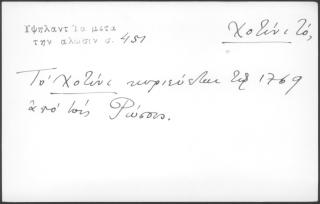 Ὑψηλαντ Τα μετα
την αλωσιν σ. 451
Χοτίνι τό,
Τό Χοτίνι κυριεύεται τῷ 1769
ἀπό τούς Ρώσους.